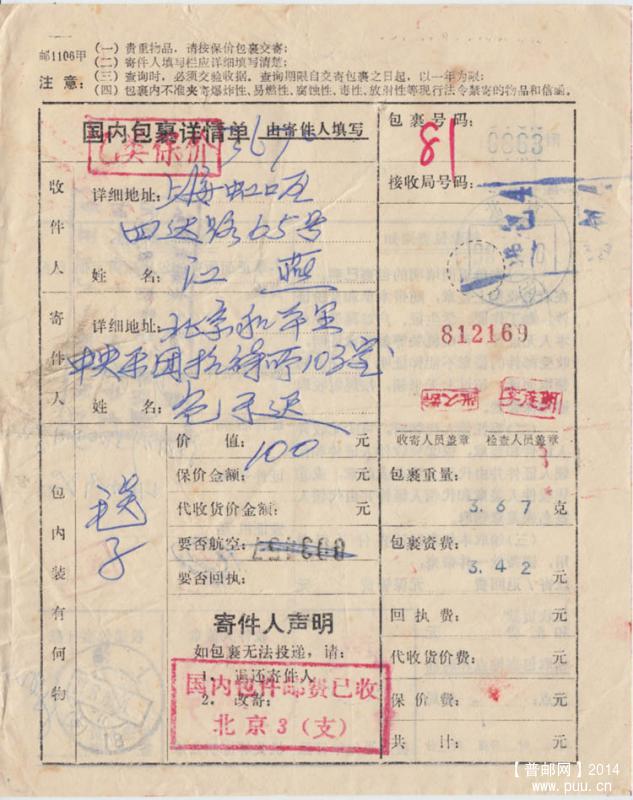 邮1106甲
注意：
(一) 贵重物品，请按保价包裹交寄；
(二) 寄件人填写栏应详细填写清楚；
(三) 查询时，必须交验收据，查询期限自交寄包裹之日起，以一年为限；
(四) 包裹内不准夹寄爆炸性、易燃性、腐蚀性、毒性、放射性等现行法令禁寄的物品和信函。
国内包裹详情单 由寄件人填写
乙类保价
包裹号码：
81
接收局号码：
收件人
详细地址：上海虹口区
四达路65号
姓名：江燕
寄件人
详细地址：北京和平里
中央乐团招待所103室
姓名：
812169
收寄人员盖章 检查人员盖章
包内装有何物
毯子
价值：100元
保价金额：元
代收货价金额：元
要否航空：
要否回执：
包裹重量：3.67克
包裹资费：3.42元
回执费：元
代收货价费：元
保价费：元
共计：元
寄件人声明
如包裹无法投递，请：
1．退还寄件人
2．改寄：
国内包件邮费已收
北京3（支）
【普邮网】2014
www.puu.cn